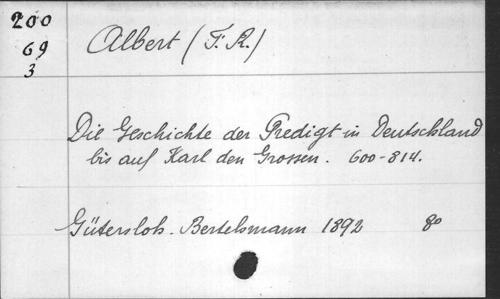 200
69
3
Albert (F. R.)
Die Geschichte der Predigt in Deutschland
bis auf Karl den Grossen. 600-814.
Gütersloh. Bertelsmann 1892 8º